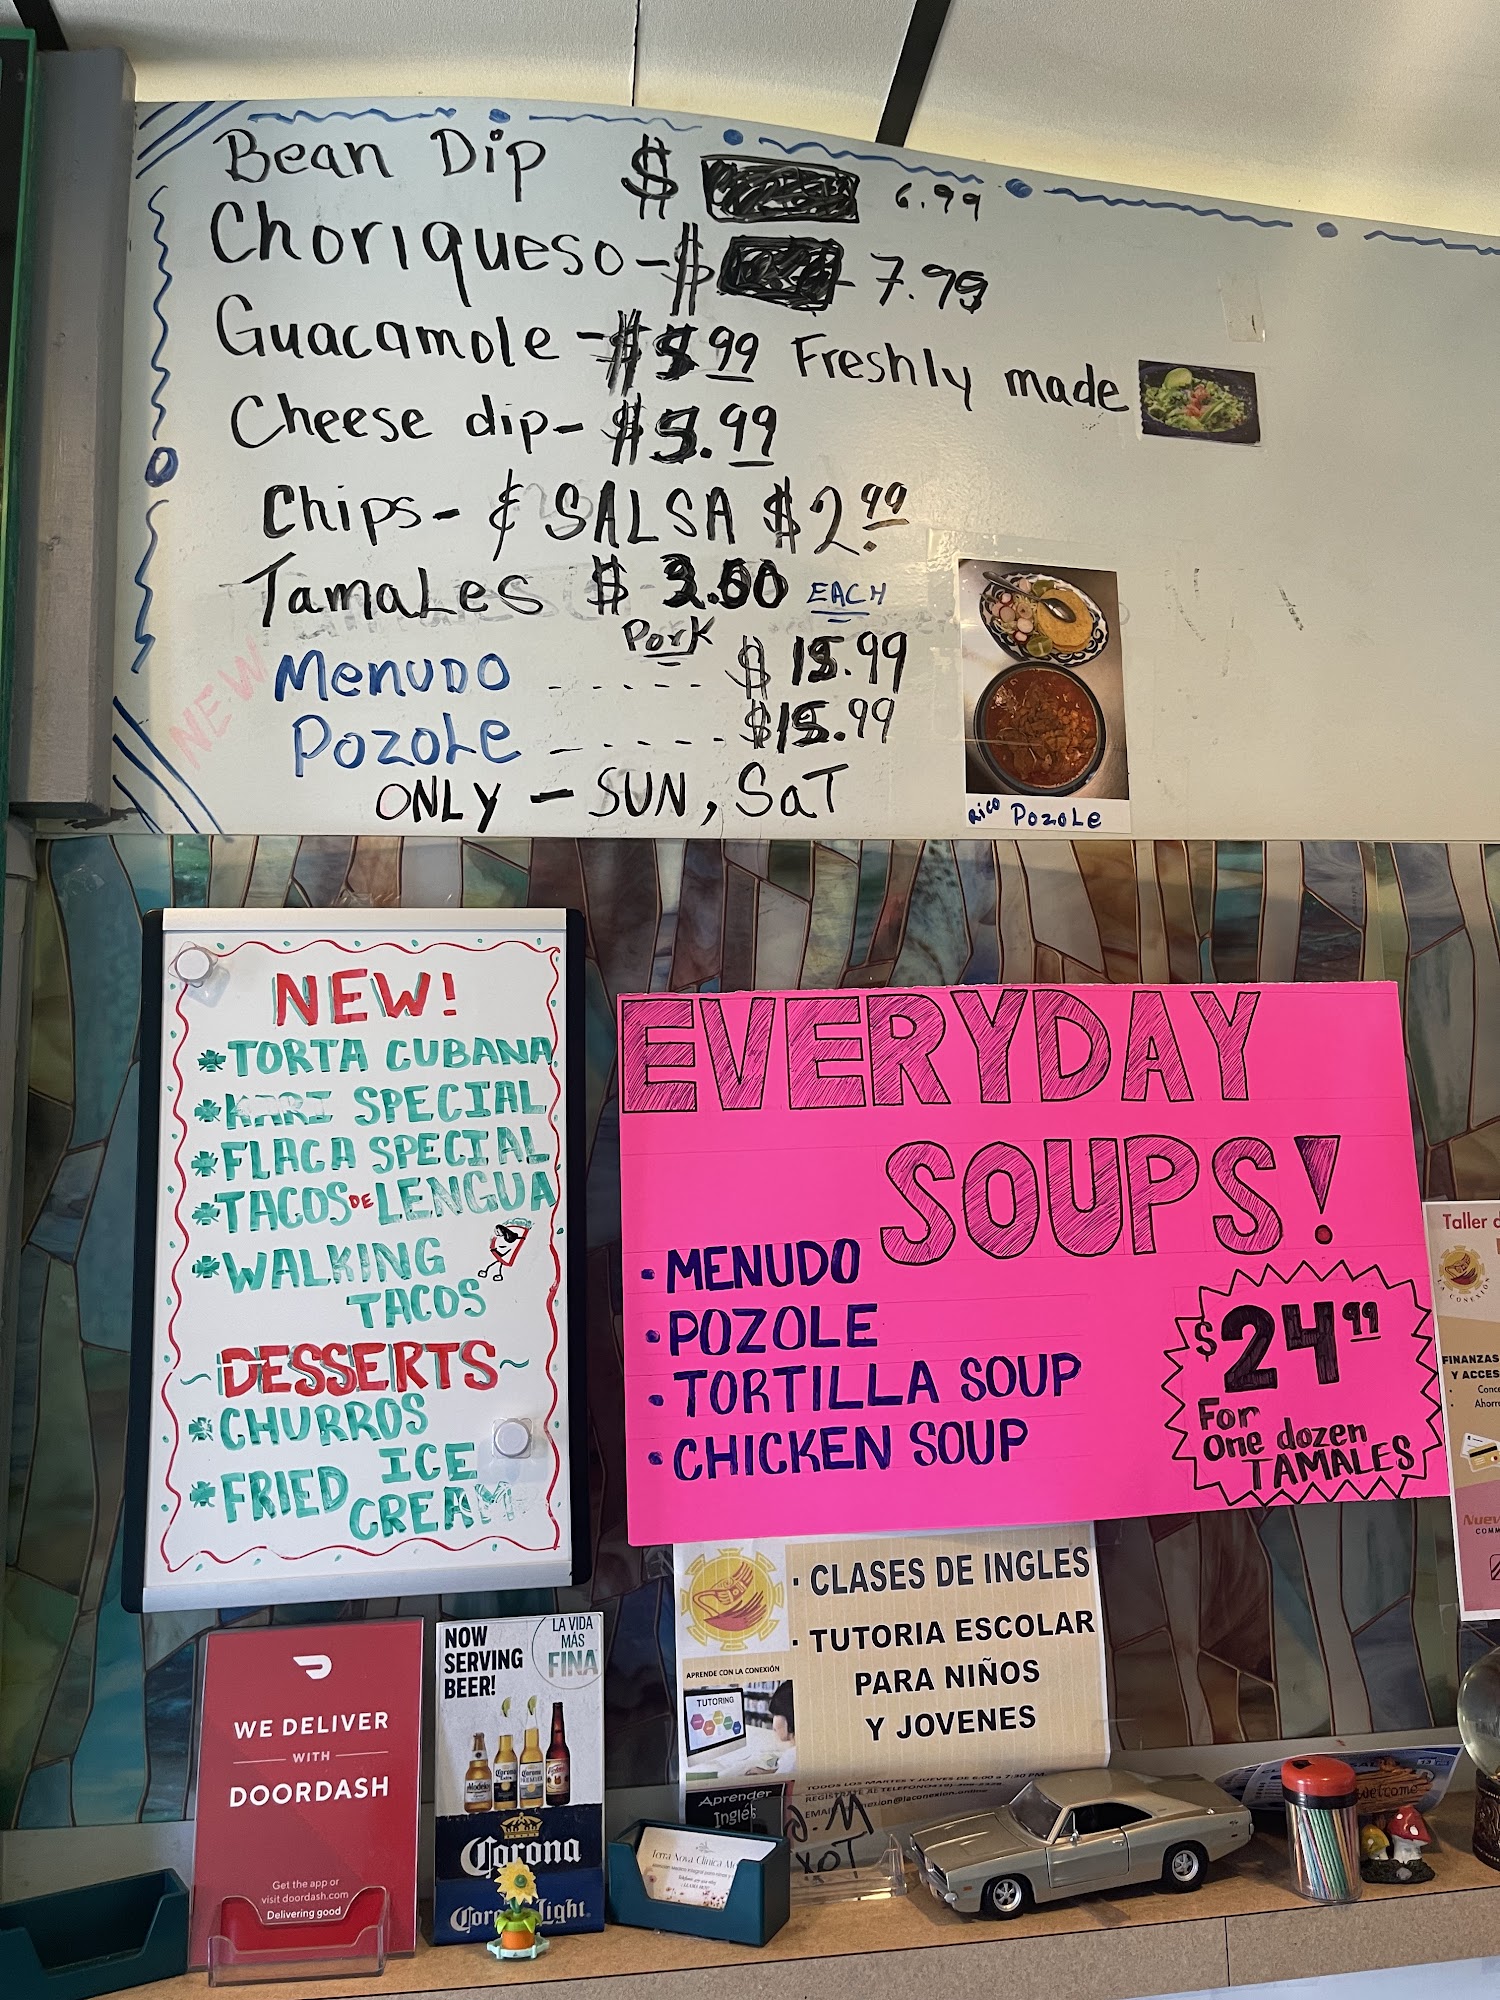 Bean Dip $ 6.99
Choriqueso - $ 7.99
Guacamole - $5.99 Freshly made
Cheese dip - $5.99
Chips - & SALSA $2.99
Tamales $ .00 EACH
Pork
NEW
Menudo ------ $ 15.99
Pozole ------ $15.99
ONLY - SUN, SaT
Rico Pozole
NEW!
TORTA CUBANA
KARI SPECIAL
FLACA SPECIAL
TACOS DE LENGUA
WALKING
TACOS
~DESSERTS~
CHURROS
FRIED ICE
CREAM
EVERYDAY
SOUPS!
• MENUDO
• POZOLE
• TORTILLA SOUP
• CHICKEN SOUP
$24.99
For
one dozen
TAMALES
Taller
CONEXIÓN
FINANZAS
Y ACCES
WE DELIVER
WITH
DOORDASH
Get the app or
visit doordash.com
Delivering good
NOW
SERVING
BEER!
LA VIDA
MÁS
FINA
Modelo
Corona
Corona
Corona
Light
· CLASES DE INGLES
· TUTORIA ESCOLAR
PARA NIÑOS
Y JOVENES
APRENDE CON LA CONEXIÓN
TUTORING
TODOS LOS MARTES Y JUEVES DE 6:00 a 7:30 PM.
Aprender
Inglés
Terra Nova Clinica
welcome